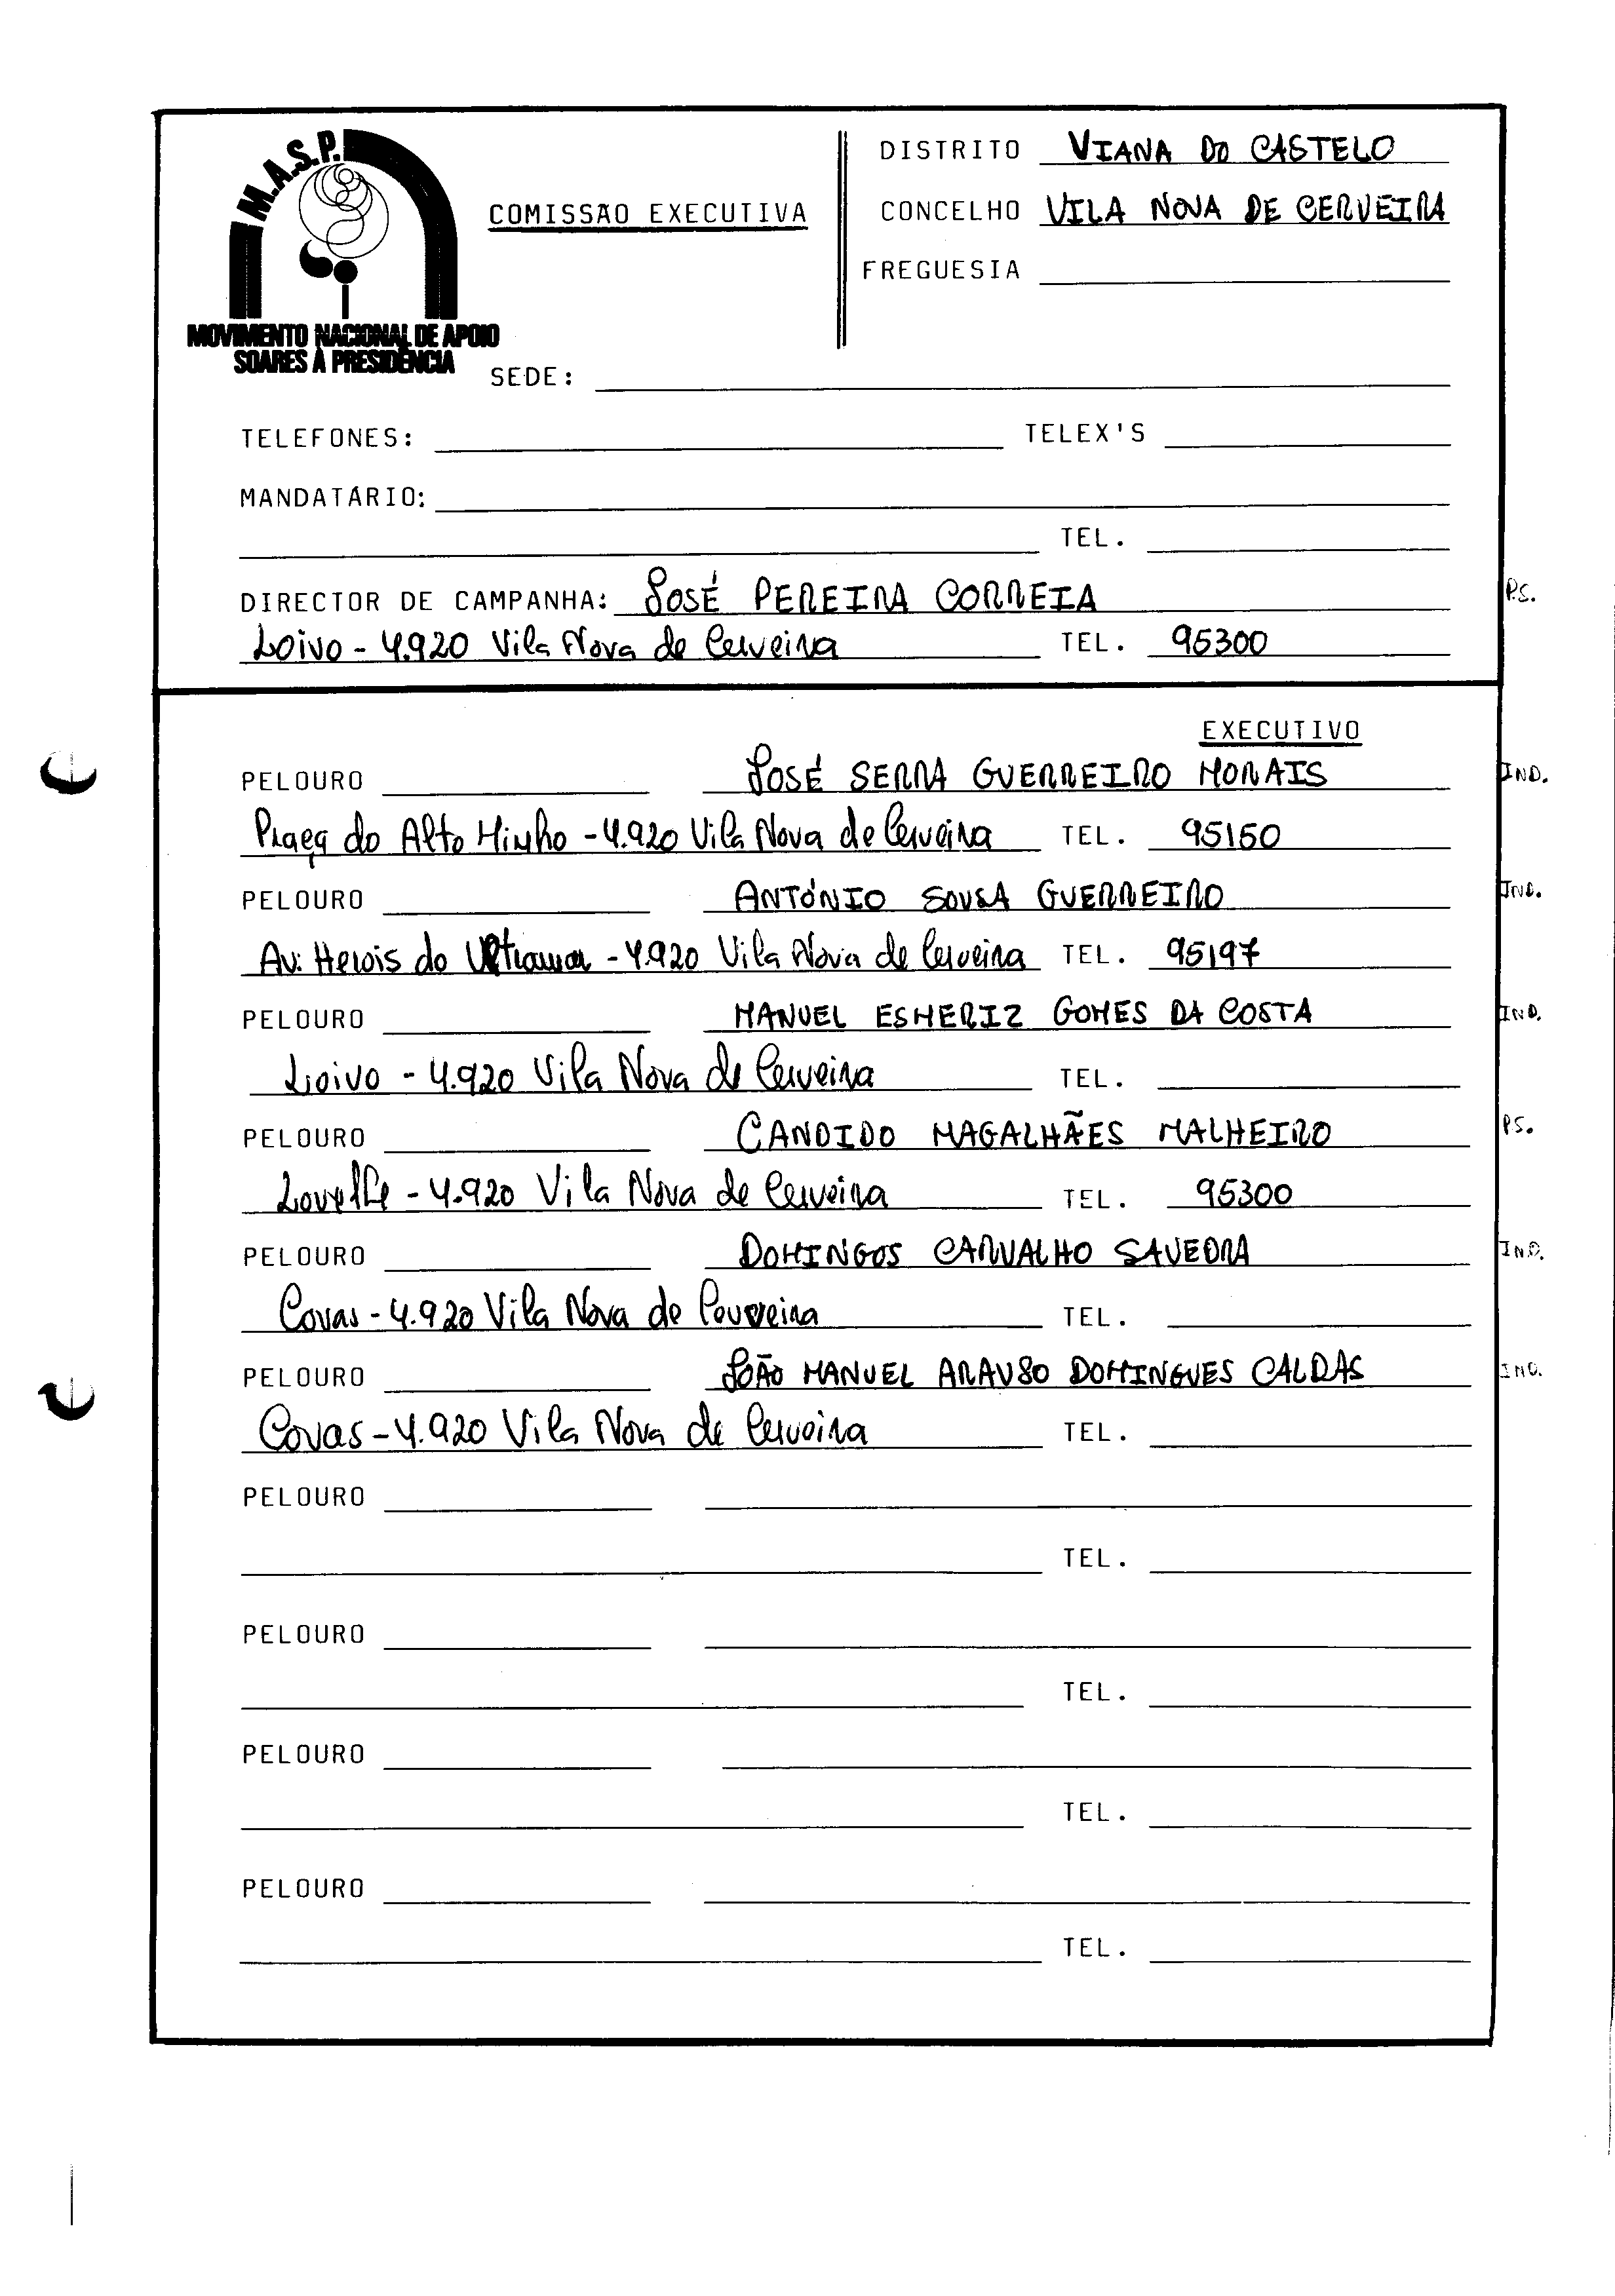 M.A.S.P.
MOVIMENTO NACIONAL DE APOIO
SOARES À PRESIDÊNCIA
COMISSÃO EXECUTIVA
DISTRITO VIANA DO CASTELO
CONCELHO VILA NOVA DE CERVEIRA
FREGUESIA
SEDE:
TELEFONES: TELEX'S
MANDATÁRIO:
TEL.
DIRECTOR DE CAMPANHA: JOSÉ PEREIRA CORREIA P.S.
Loivo - 4.920 Vila Nova de Cerveira TEL. 95300
EXECUTIVO
PELOURO JOSÉ SERRA GUERREIRO MORAIS IND.
Praça do Alto Minho - 4.920 Vila Nova de Cerveira TEL. 95150
PELOURO ANTÓNIO SOUSA GUERREIRO IND.
Av. Herois do Ultramar - 4.920 Vila Nova de Cerveira TEL. 95197
PELOURO MANUEL ESMERIZ GOMES DA COSTA IND.
Loivo - 4.920 Vila Nova de Cerveira TEL.
PELOURO CANDIDO MAGALHÃES MALHEIRO PS.
Lovelhe - 4.920 Vila Nova de Cerveira TEL. 95300
PELOURO DOMINGOS CARVALHO SAVEDRA IND.
Covas - 4.920 Vila Nova de Cerveira TEL.
PELOURO JOÃO MANUEL ARAUJO DOMINGUES CALDAS IND.
Covas - 4.920 Vila Nova de Cerveira TEL.
PELOURO
TEL.
PELOURO
TEL.
PELOURO
TEL.
PELOURO
TEL.